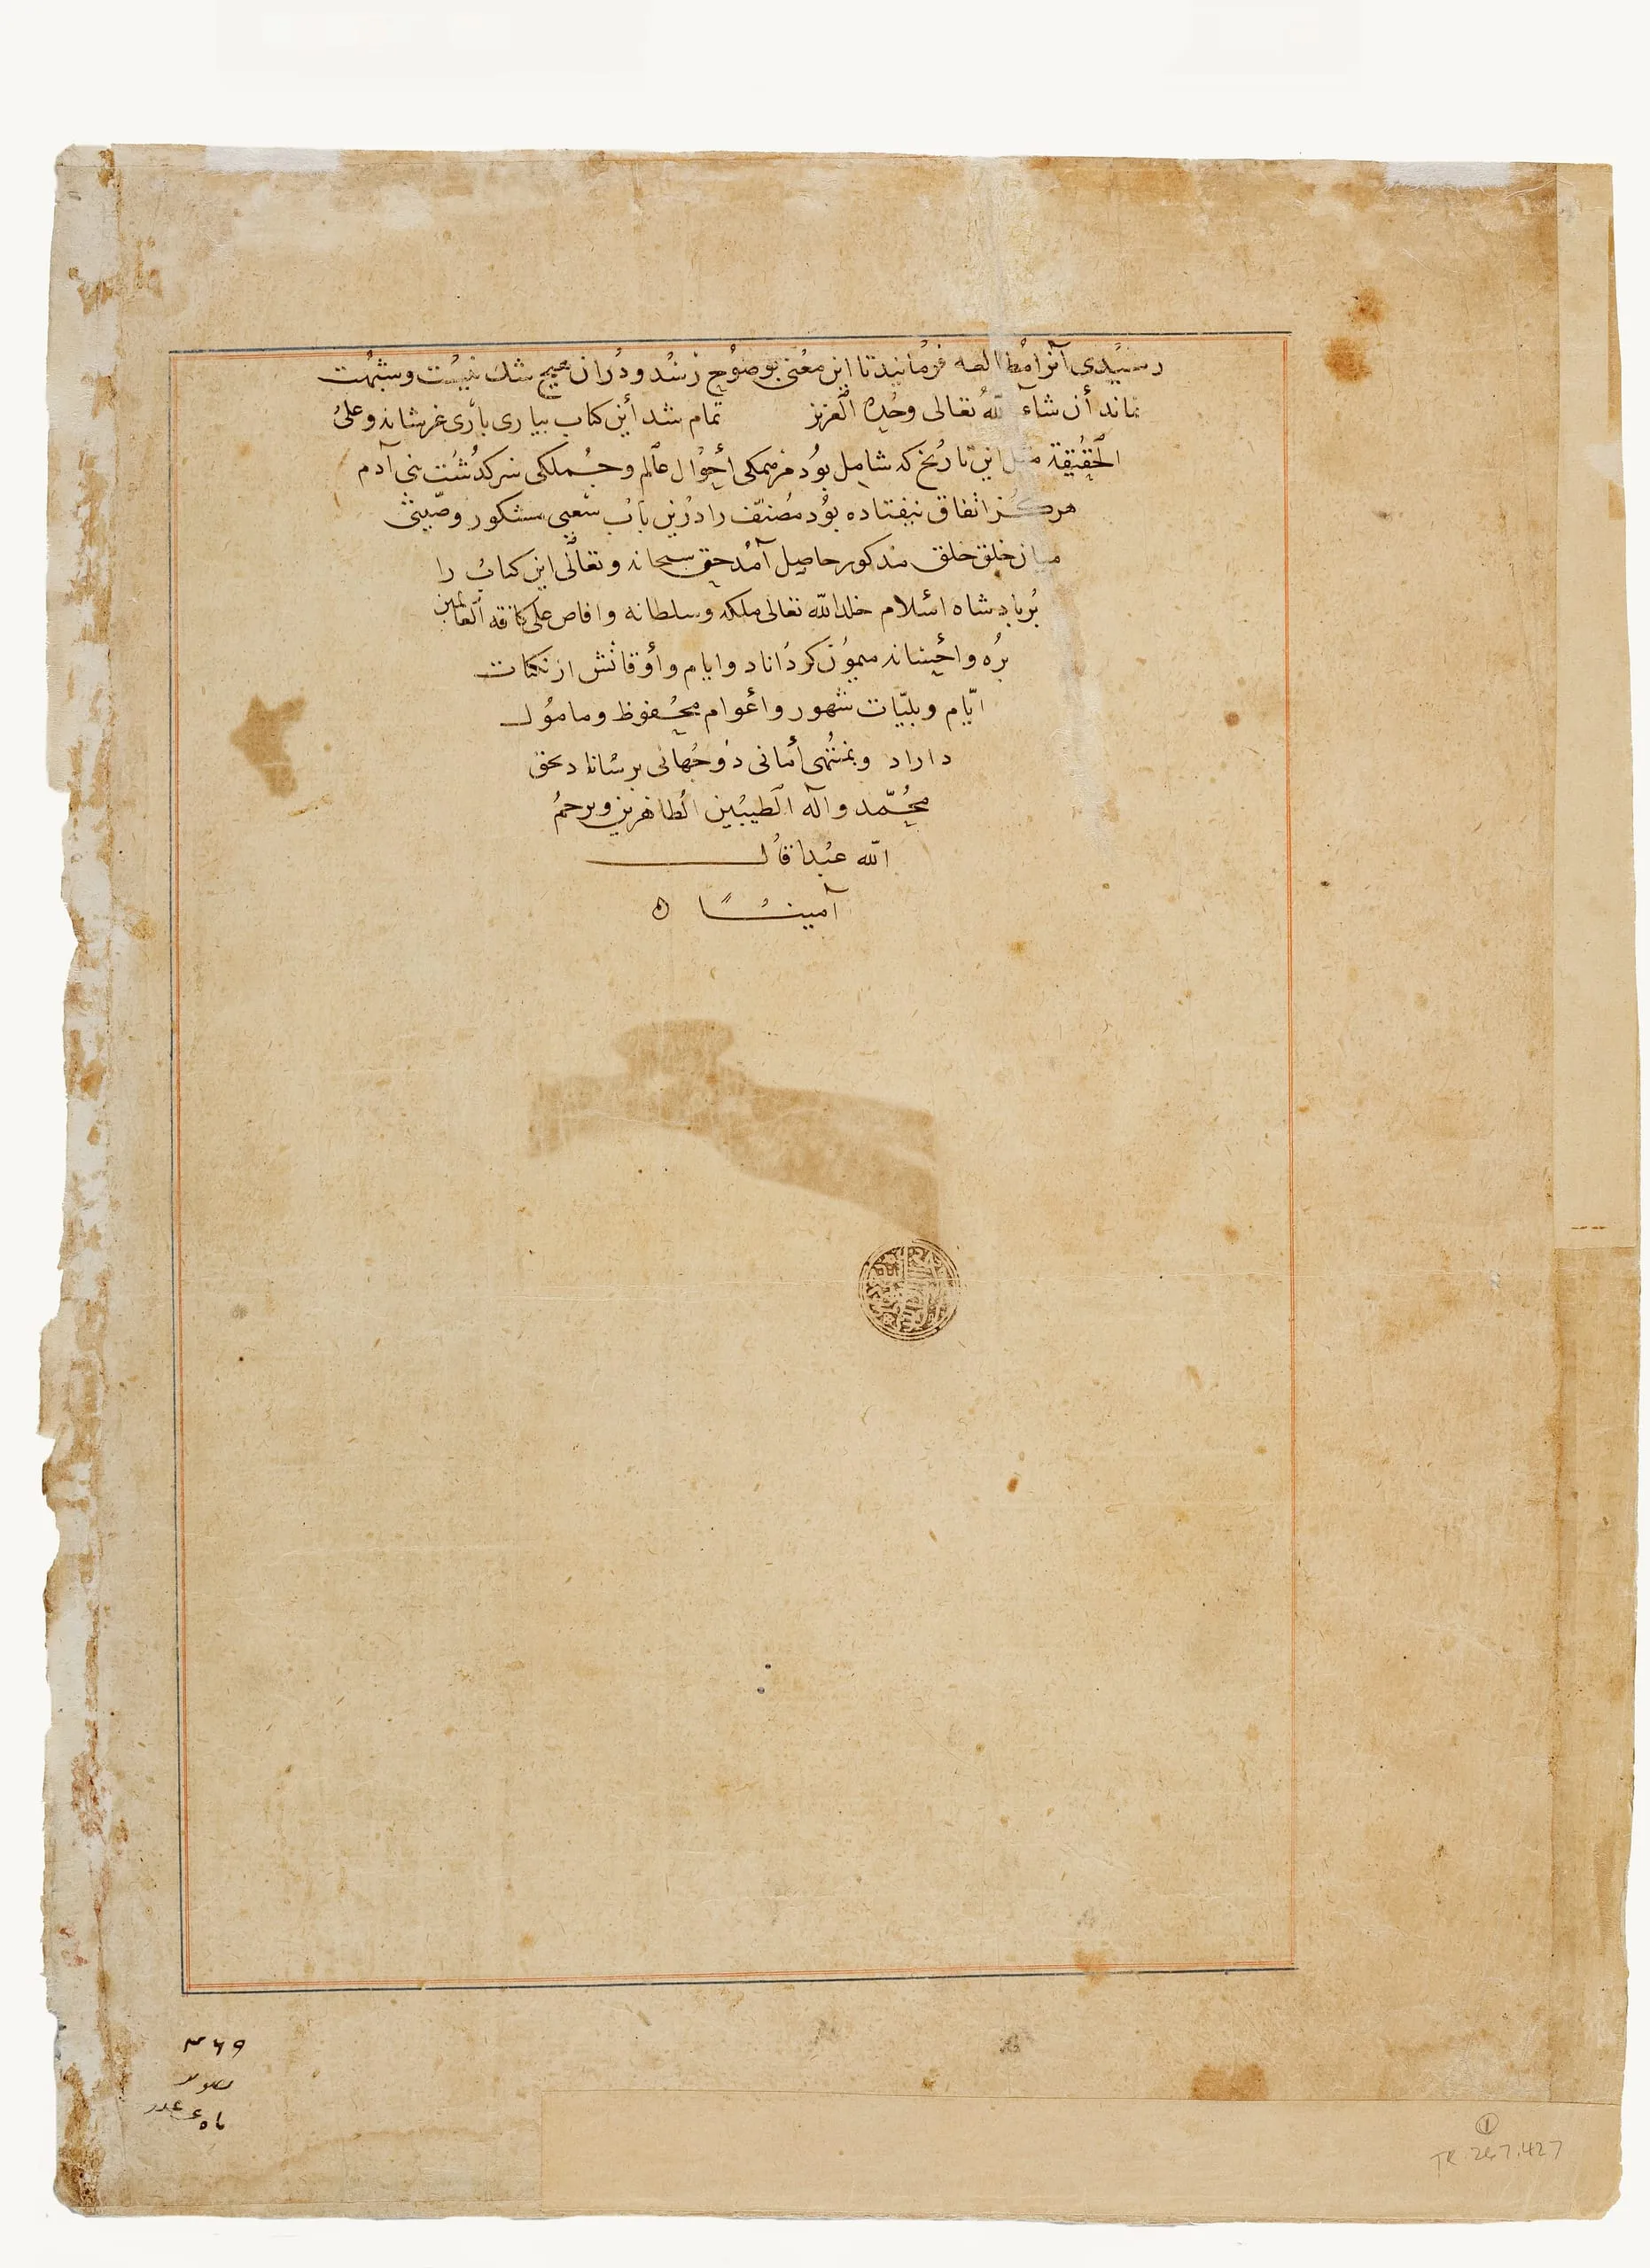 رسیدی آنرا مطالعه فرمانید تا این معنی بوضوح رسد و دران هیچ شک نیست و شبهت
نماند أن شاء الله تعالی وحده العزیز تمام شد أین کتاب بیاری باری عز شانه و علی
الحقیقة مثل این تاریخ که شامل بود مر همکی أحوال عالم و جملکی سرکذشت بنی آدم
هرکز اتفاق نیفتاده بود مصنف را درین باب سعیی مشکور وصیتی
میان خلق خلق مذکور حاصل آمد حق سبحانه و تعالی این کتاب را
بر پادشاه اسلام خلد الله تعالی ملکه و سلطانه و افاض علی کافة العالمین
بره و احسانه میمون کرداناد و ایام و أوقاتش از نکبات
ایام و بلیات شهور و أعوام محفوظ و مامول
داراد و بمنتهی أمانی دوجهانی برساناد بحق
محمد و اله الطیبین الطاهرین و یرحم
الله عبدا قال
آمینا ه
۳۶۹
1
TR.267.427